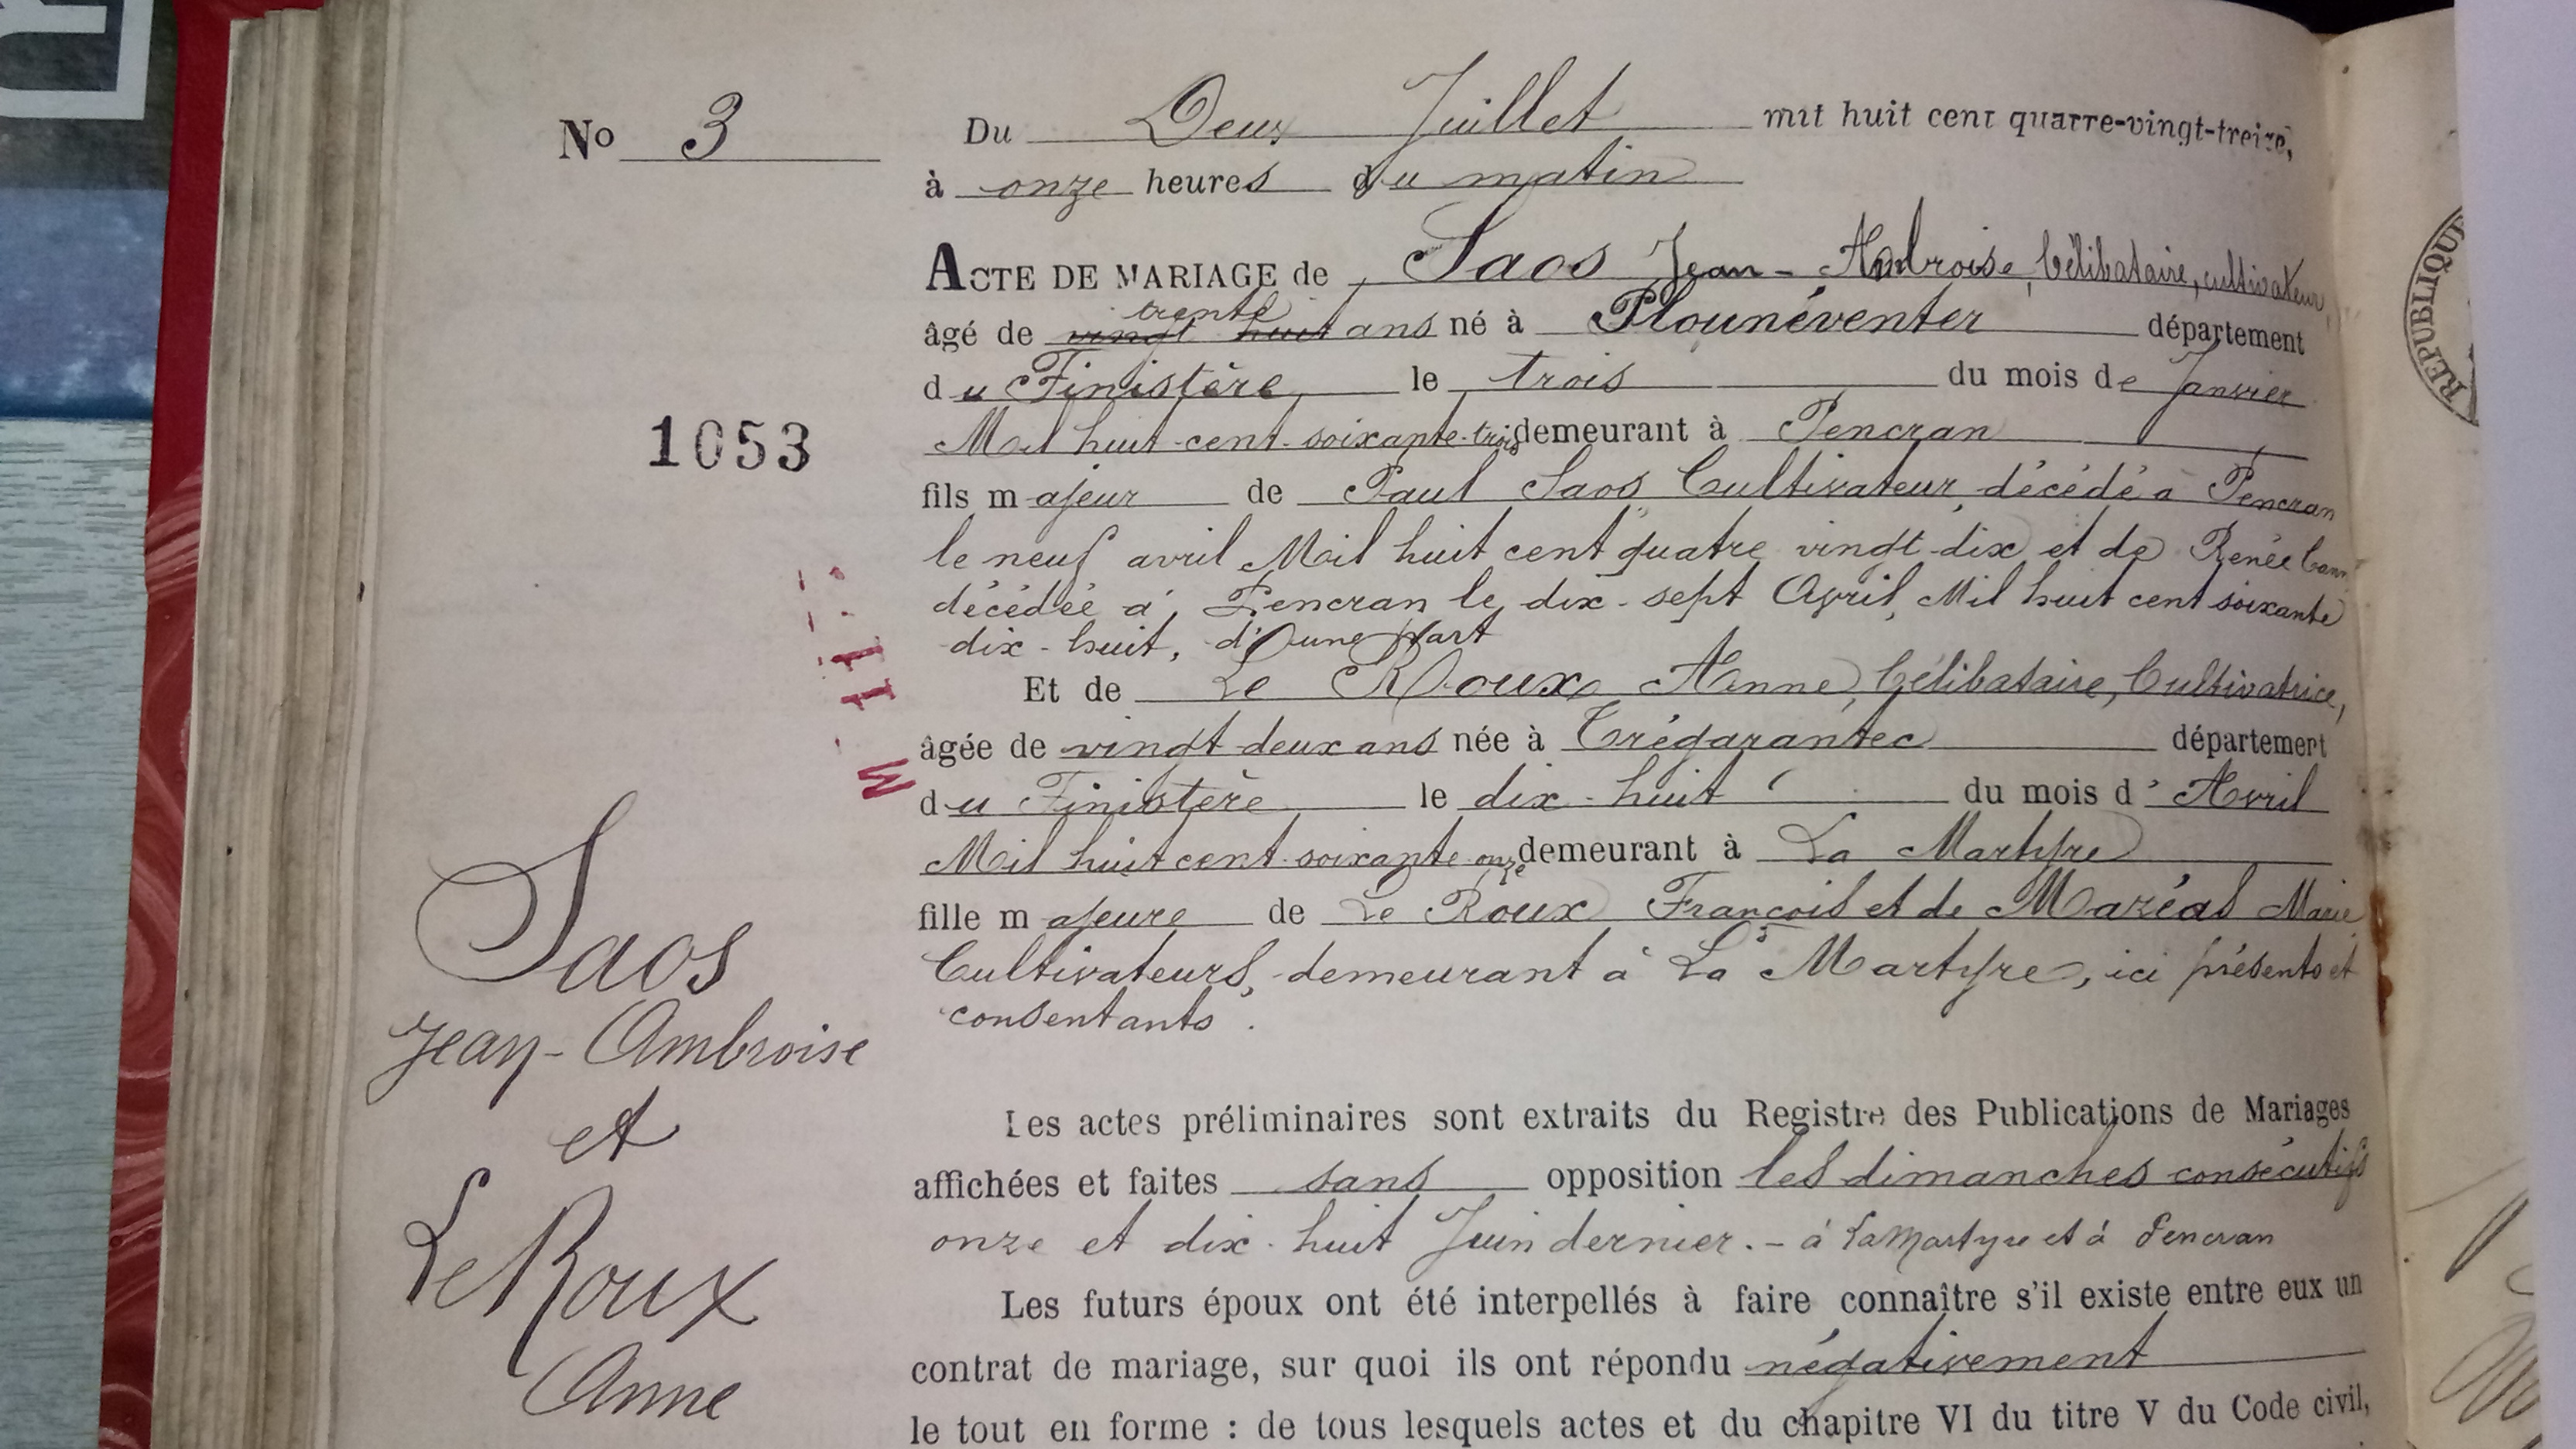 No 3
Du Deux Juillet mil huit cent quatre-vingt-treize,
à onze heures du matin
ACTE DE MARIAGE de Saos Jean-Ambroise, Célibataire, cultivateur,
trente
âgé de vingt huit ans né à Plounéventer département
du Finistère le trois du mois de Janvier
1053
Mil huit-cent-soixante-trois demeurant à Pencran
fils majeur de Paul Saos Cultivateur, décédé à Pencran
le neuf avril Mil huit cent quatre vingt-dix et de Renée
décédée à Pencran le dix-sept Avril Mil huit cent soixante
dix-huit, d'une part
Et de Le Roux Anne, Célibataire, Cultivatrice,
âgée de vingt-deux ans née à Trégarantec département
du Finistère le dix-huit du mois d'Avril
Mil huit cent-soixante-onze demeurant à La Martyre
fille majeure de Le Roux François et de Mazéas Marie
Cultivateurs, demeurant à La Martyre, ici présents et
consentants.
Saos
Jean-Ambroise
et
Le Roux
Anne
Les actes préliminaires sont extraits du Registre des Publications de Mariages
affichées et faites sans opposition les dimanches consécutifs
onze et dix-huit Juin dernier.- à La Martyre et à Pencran
Les futurs époux ont été interpellés à faire connaître s'il existe entre eux un
contrat de mariage, sur quoi ils ont répondu négativement
le tout en forme : de tous lesquels actes et du chapitre VI du titre V du Code civil,
REPUBLIQU